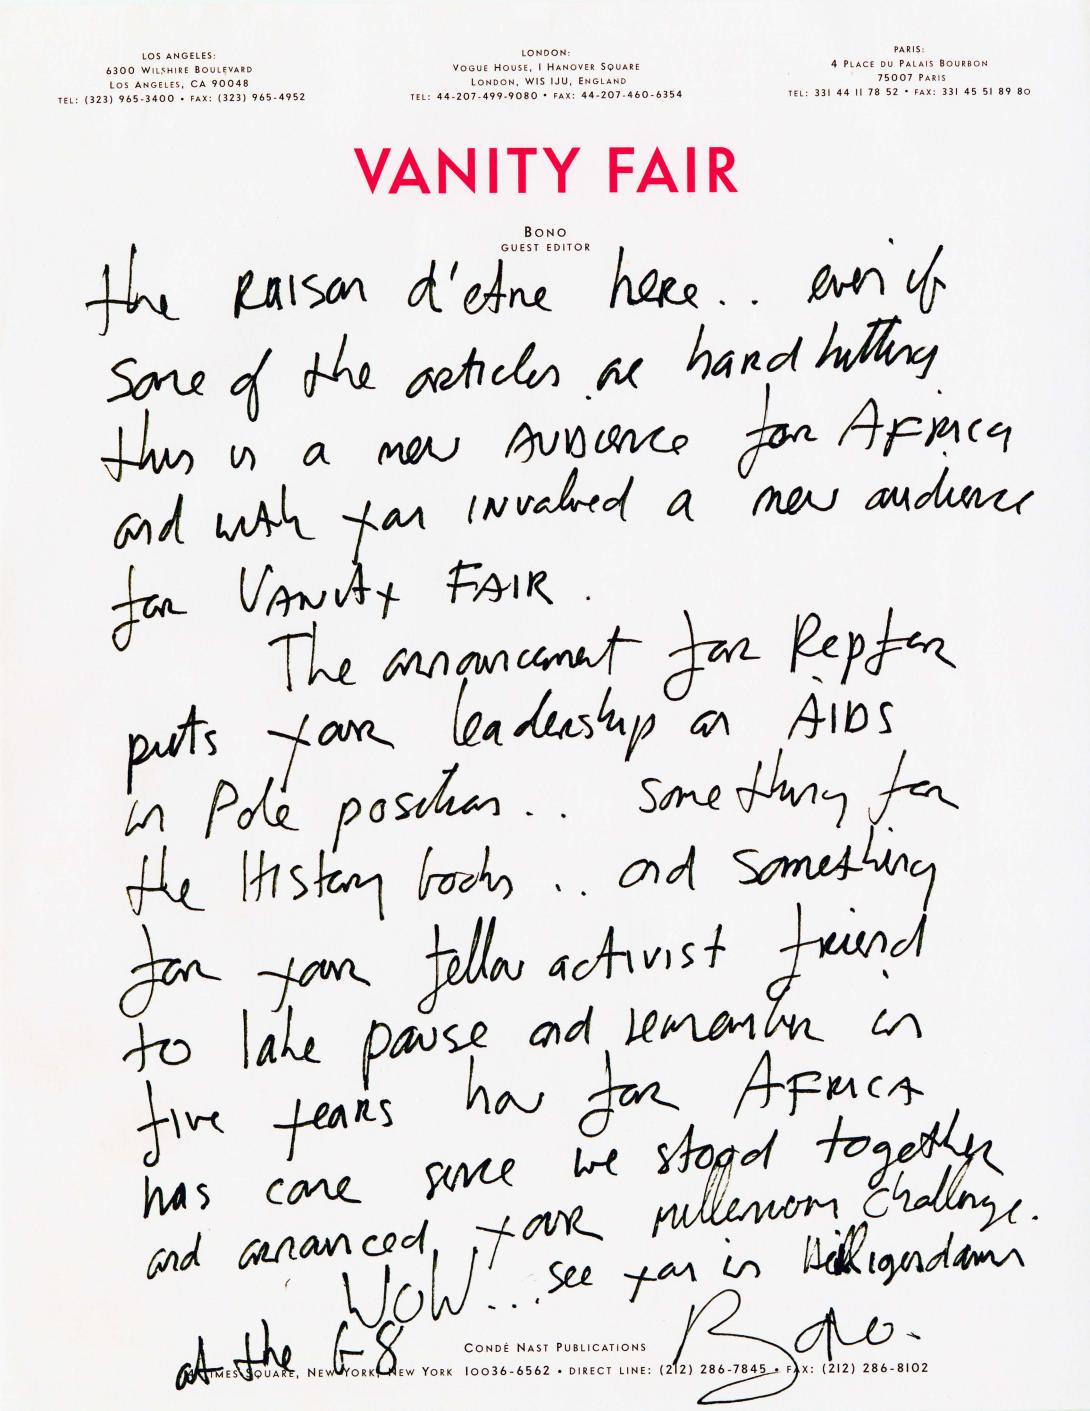 LOS ANGELES:
6300 WILSHIRE BOULEVARD
LOS ANGELES, CA 90048
TEL: (323) 965-3400 • FAX: (323) 965-4952
LONDON:
VOGUE HOUSE, 1 HANOVER SQUARE
LONDON, W1S 1JU, ENGLAND
TEL: 44-207-499-9080 • FAX: 44-207-460-6354
PARIS:
4 PLACE DU PALAIS BOURBON
75007 PARIS
TEL: 331 44 11 78 52 • FAX: 331 45 51 89 80
VANITY FAIR
BONO
GUEST EDITOR
the Raison d'etre here.. even if
some of the articles are hard hitting
this is a new AUDIENCE for AFRICA
and with you INvolved a new audience
for VANITY FAIR.
The announcement for Pepfar
puts your leadership on AIDS
in Pole position.. something for
the History books .. and something
for your fellow activist friend
to take pause and remember in
five years how far AFRICA
has come since we stood together
and announced your millenium challenge.
WOW... see you in Heiligendamm
at the G8 Bono.
CONDÉ NAST PUBLICATIONS
4 TIMES SQUARE, NEW YORK, NEW YORK 10036-6562 • DIRECT LINE: (212) 286-7845 • FAX: (212) 286-8102